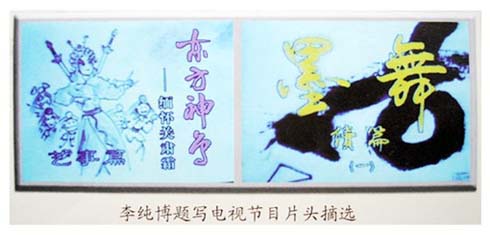 东方神鸟
——缅怀关肃霜
艺事篇
墨舞
续篇
(一)
李纯博题写电视节目片头摘选